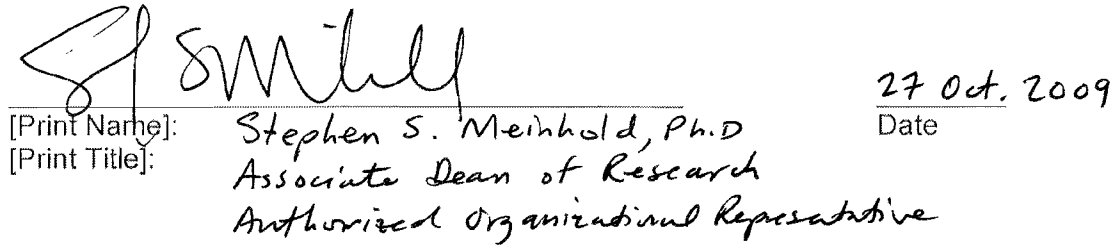 27 Oct. 2009
[Print Name]: Stephen S. Meinhold, Ph.D
Date
[Print Title]: Associate Dean of Research
Authorized Organizational Representative